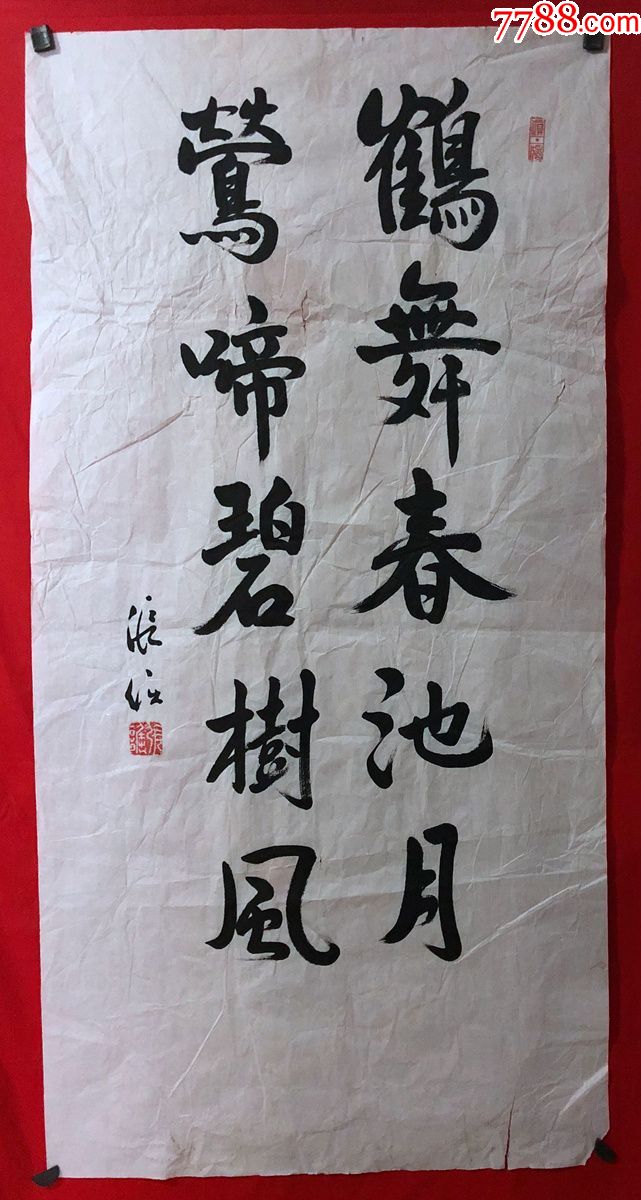 7788.com
鶴舞春池月
鶯啼碧樹風